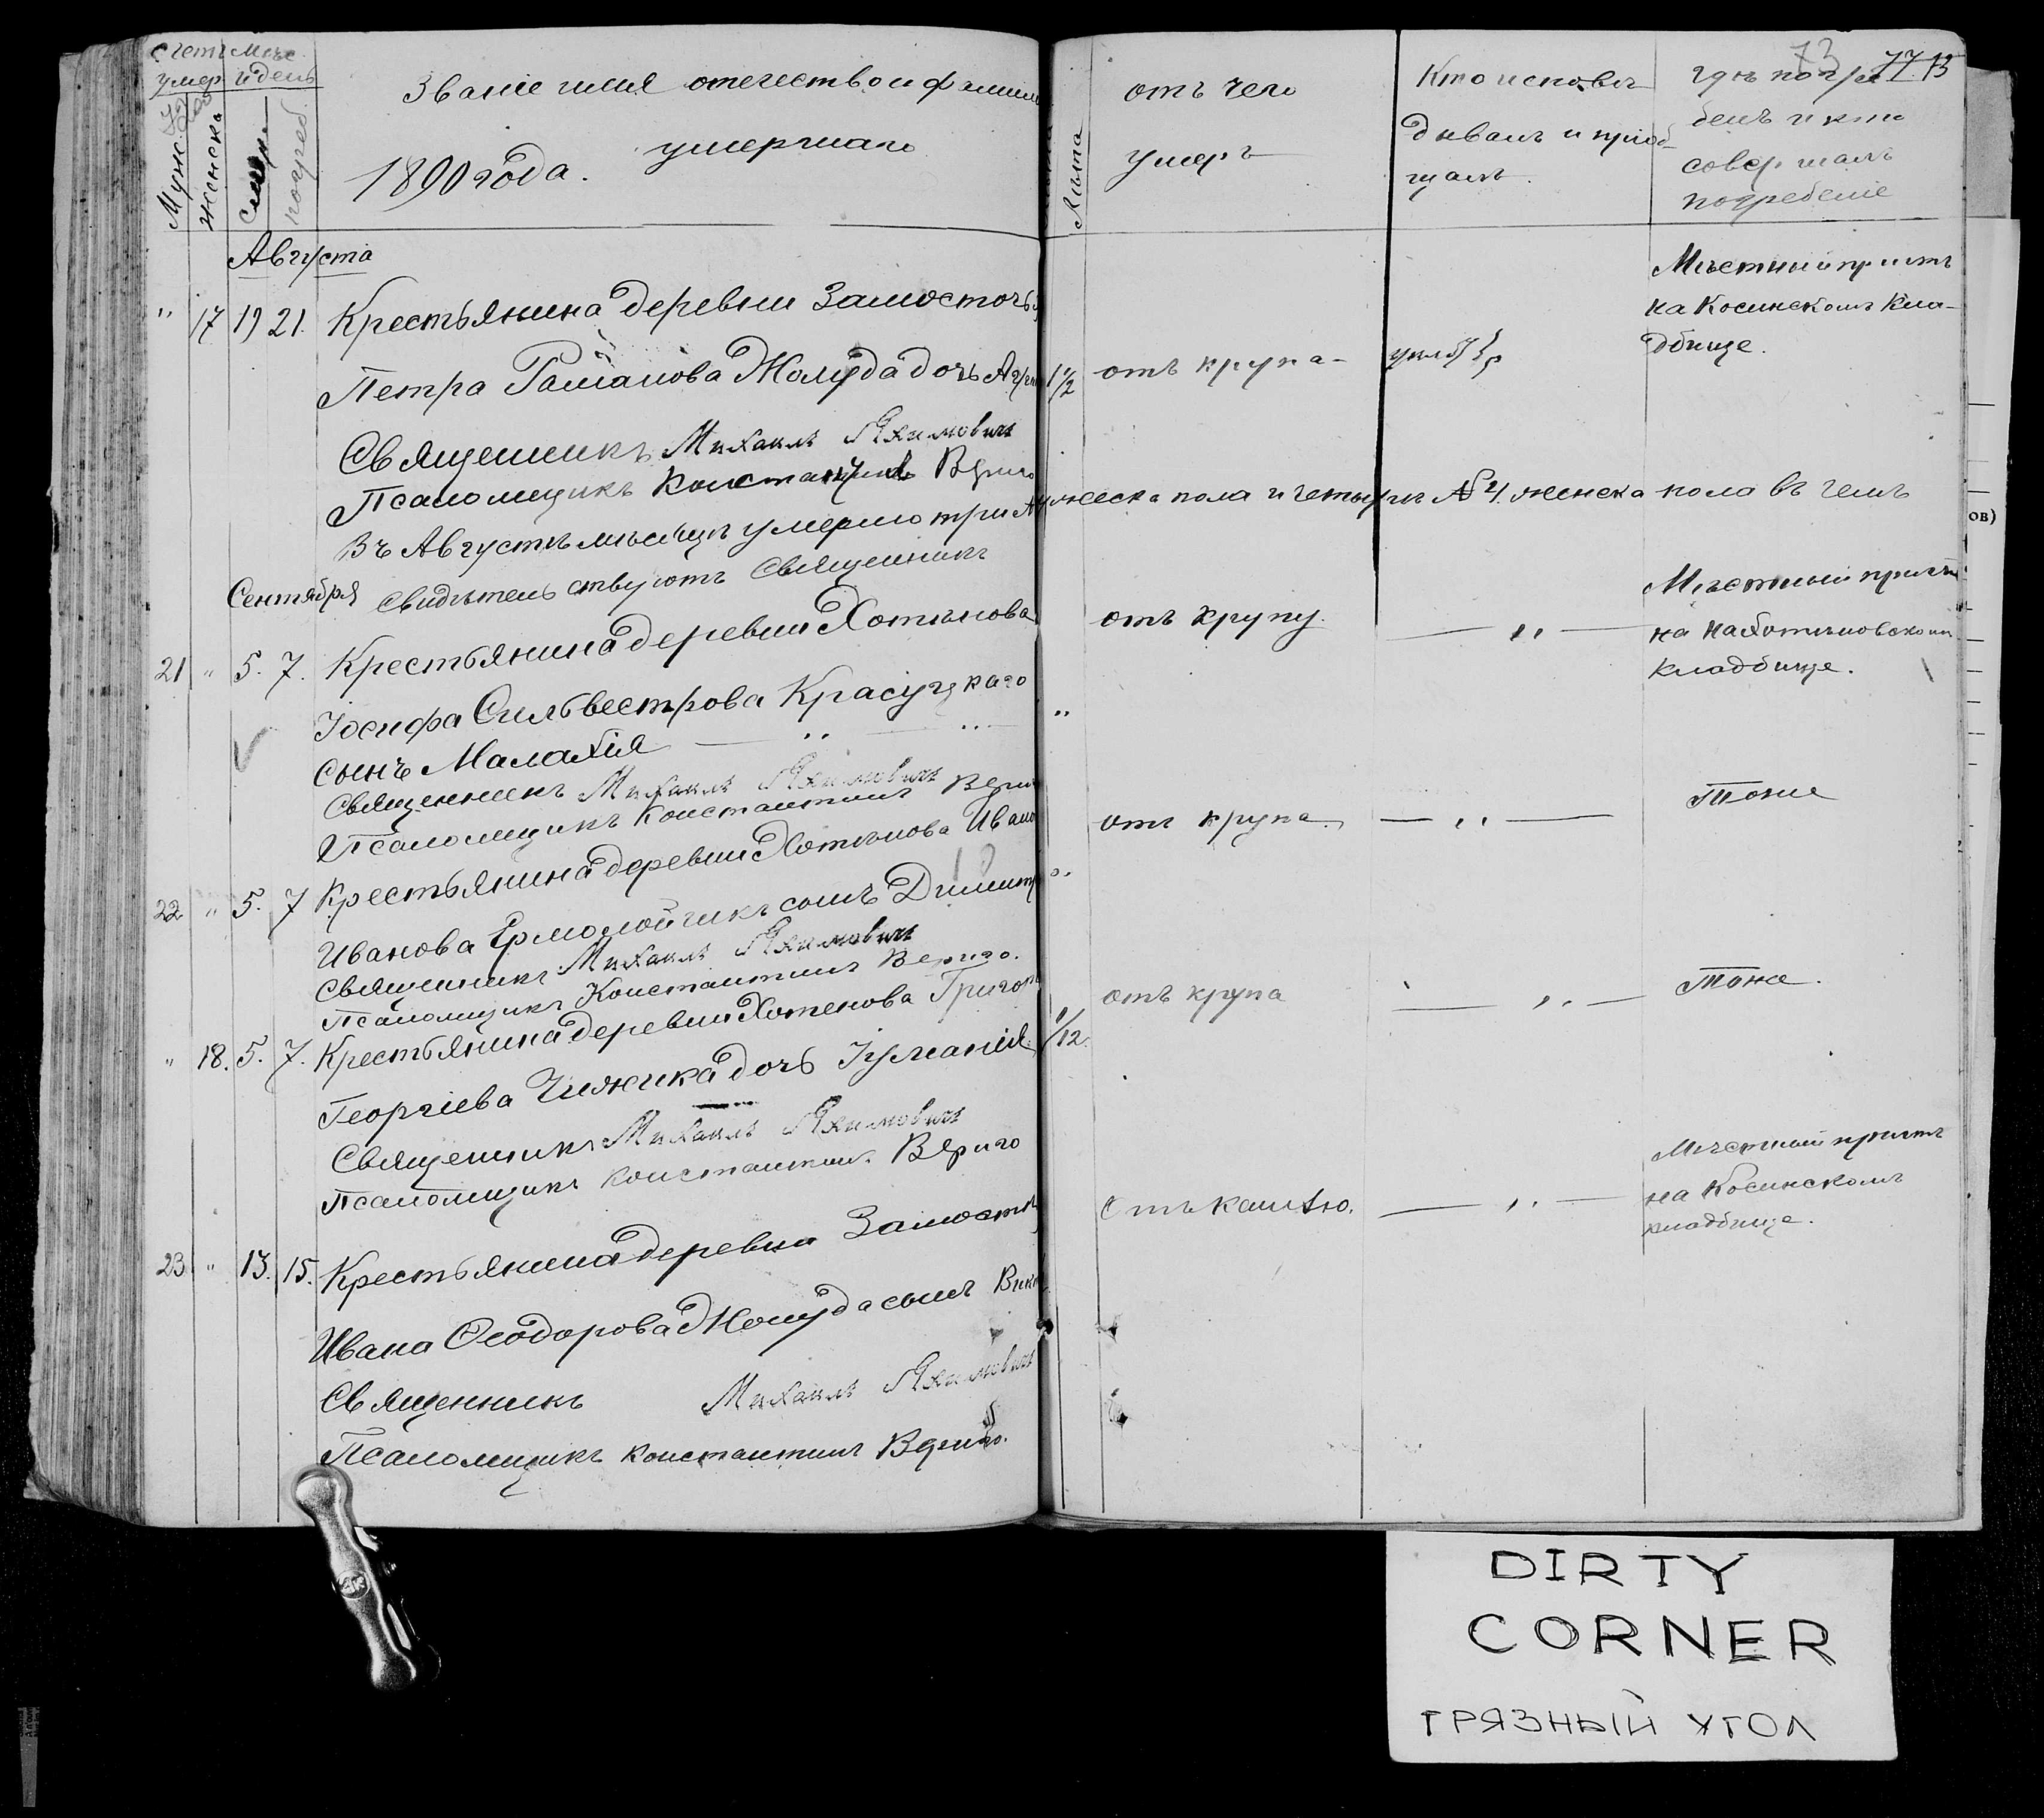 Счетъ Мѣс.
умер. и день
Муж.
женска
смер.
погреб.
Званіе имя отечество и фамил
умершаго
1890 года.
Лѣта
отъ чего
умеръ
Кто исповѣ
дывалъ и пріоб
щалъ.
гдѣ погре
бенъ и кто
совершалъ
погребеніе
73
77. 73
Августа
" 17 19 21. Крестьянина деревни Замосточь
Петра Романова Жолуда дочь Агри
1 1/2
отъ крупа-
Мѣстный причтъ
на Косинскомъ Кла-
дбище.
Священникъ Михаилъ Якимовичъ
Псаломщикъ Константинъ Вериго
Въ Августѣ мѣсяцѣ умерло три Мужеска пола и четыри №4. женска пола въ чемъ
свидѣтельствуютъ Священникъ
Сентября
21 " 5. 7. Крестьянина деревни Хотѣнова
Іосифа Сильвестрова Красуцкаго
сынъ Малахія
"
отъ крупу.
— " —
Мѣстный причтъ
на Хотѣновскомъ
кладбище.
Священникъ Михаилъ Якимовичъ
Псаломщикъ Константинъ Вериг
22. " 5. 7 Крестьянина деревни Хотѣнова Ивано
Иванова Ермолойчикъ сынъ Димитр
"
отъ крупа.
— " —
Тоже
Священникъ Михаилъ Якимовичъ
Псаломщикъ Константинъ Вериго.
" 18. 5. 7. Крестьянина деревни Хотенова Григор
Георгіева Чижика дочь Іуліанія
1/12.
отъ крупа
— " —
Тоже.
Священникъ Михаилъ Якимовичъ
Псаломщикъ Константинъ Вериго
23 " 13. 15. Крестьянина деревни Замосточ
Ивана Ѳеодорова Жолуда сынъ Вик
Отъ кашлю.
— " —
Мѣстный причтъ
на Косинскомъ
кладбище.
Священникъ Михаилъ Якимовичъ
Псаломщикъ Константинъ Вериго.
ов)
DIRTY
CORNER
ГРЯЗНЫЙ УГОЛ